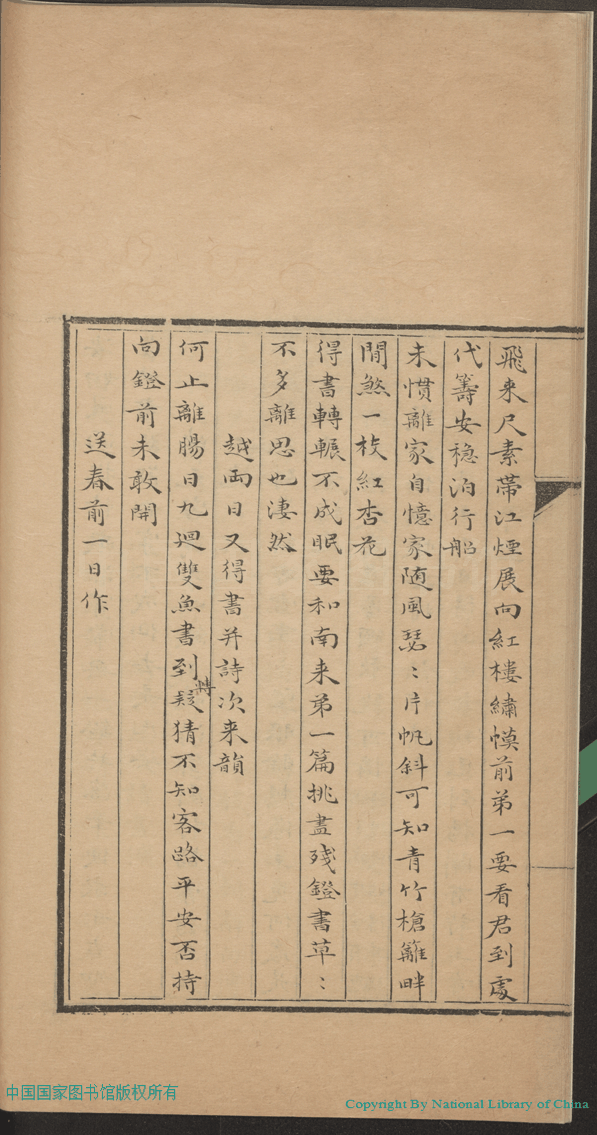 飛来尺素帶江煙展向紅樓繡幙前第一要看君到處
代籌安穏泊行船
未慣離家自憶家随風瑟〻片帆斜可知青竹槍籬畔
閒煞一枝紅杏花
得書轉輾不成眠要和南来第一篇挑盡残鐙書草〻
不多離思也淒然
越兩日又得書并詩次来韻
何止離腸日九迴雙魚書到轉疑猜不知客路平安否持
向鐙前未敢開
送春前一日作
中国国家图书馆版权所有
Copyright By National Library of China